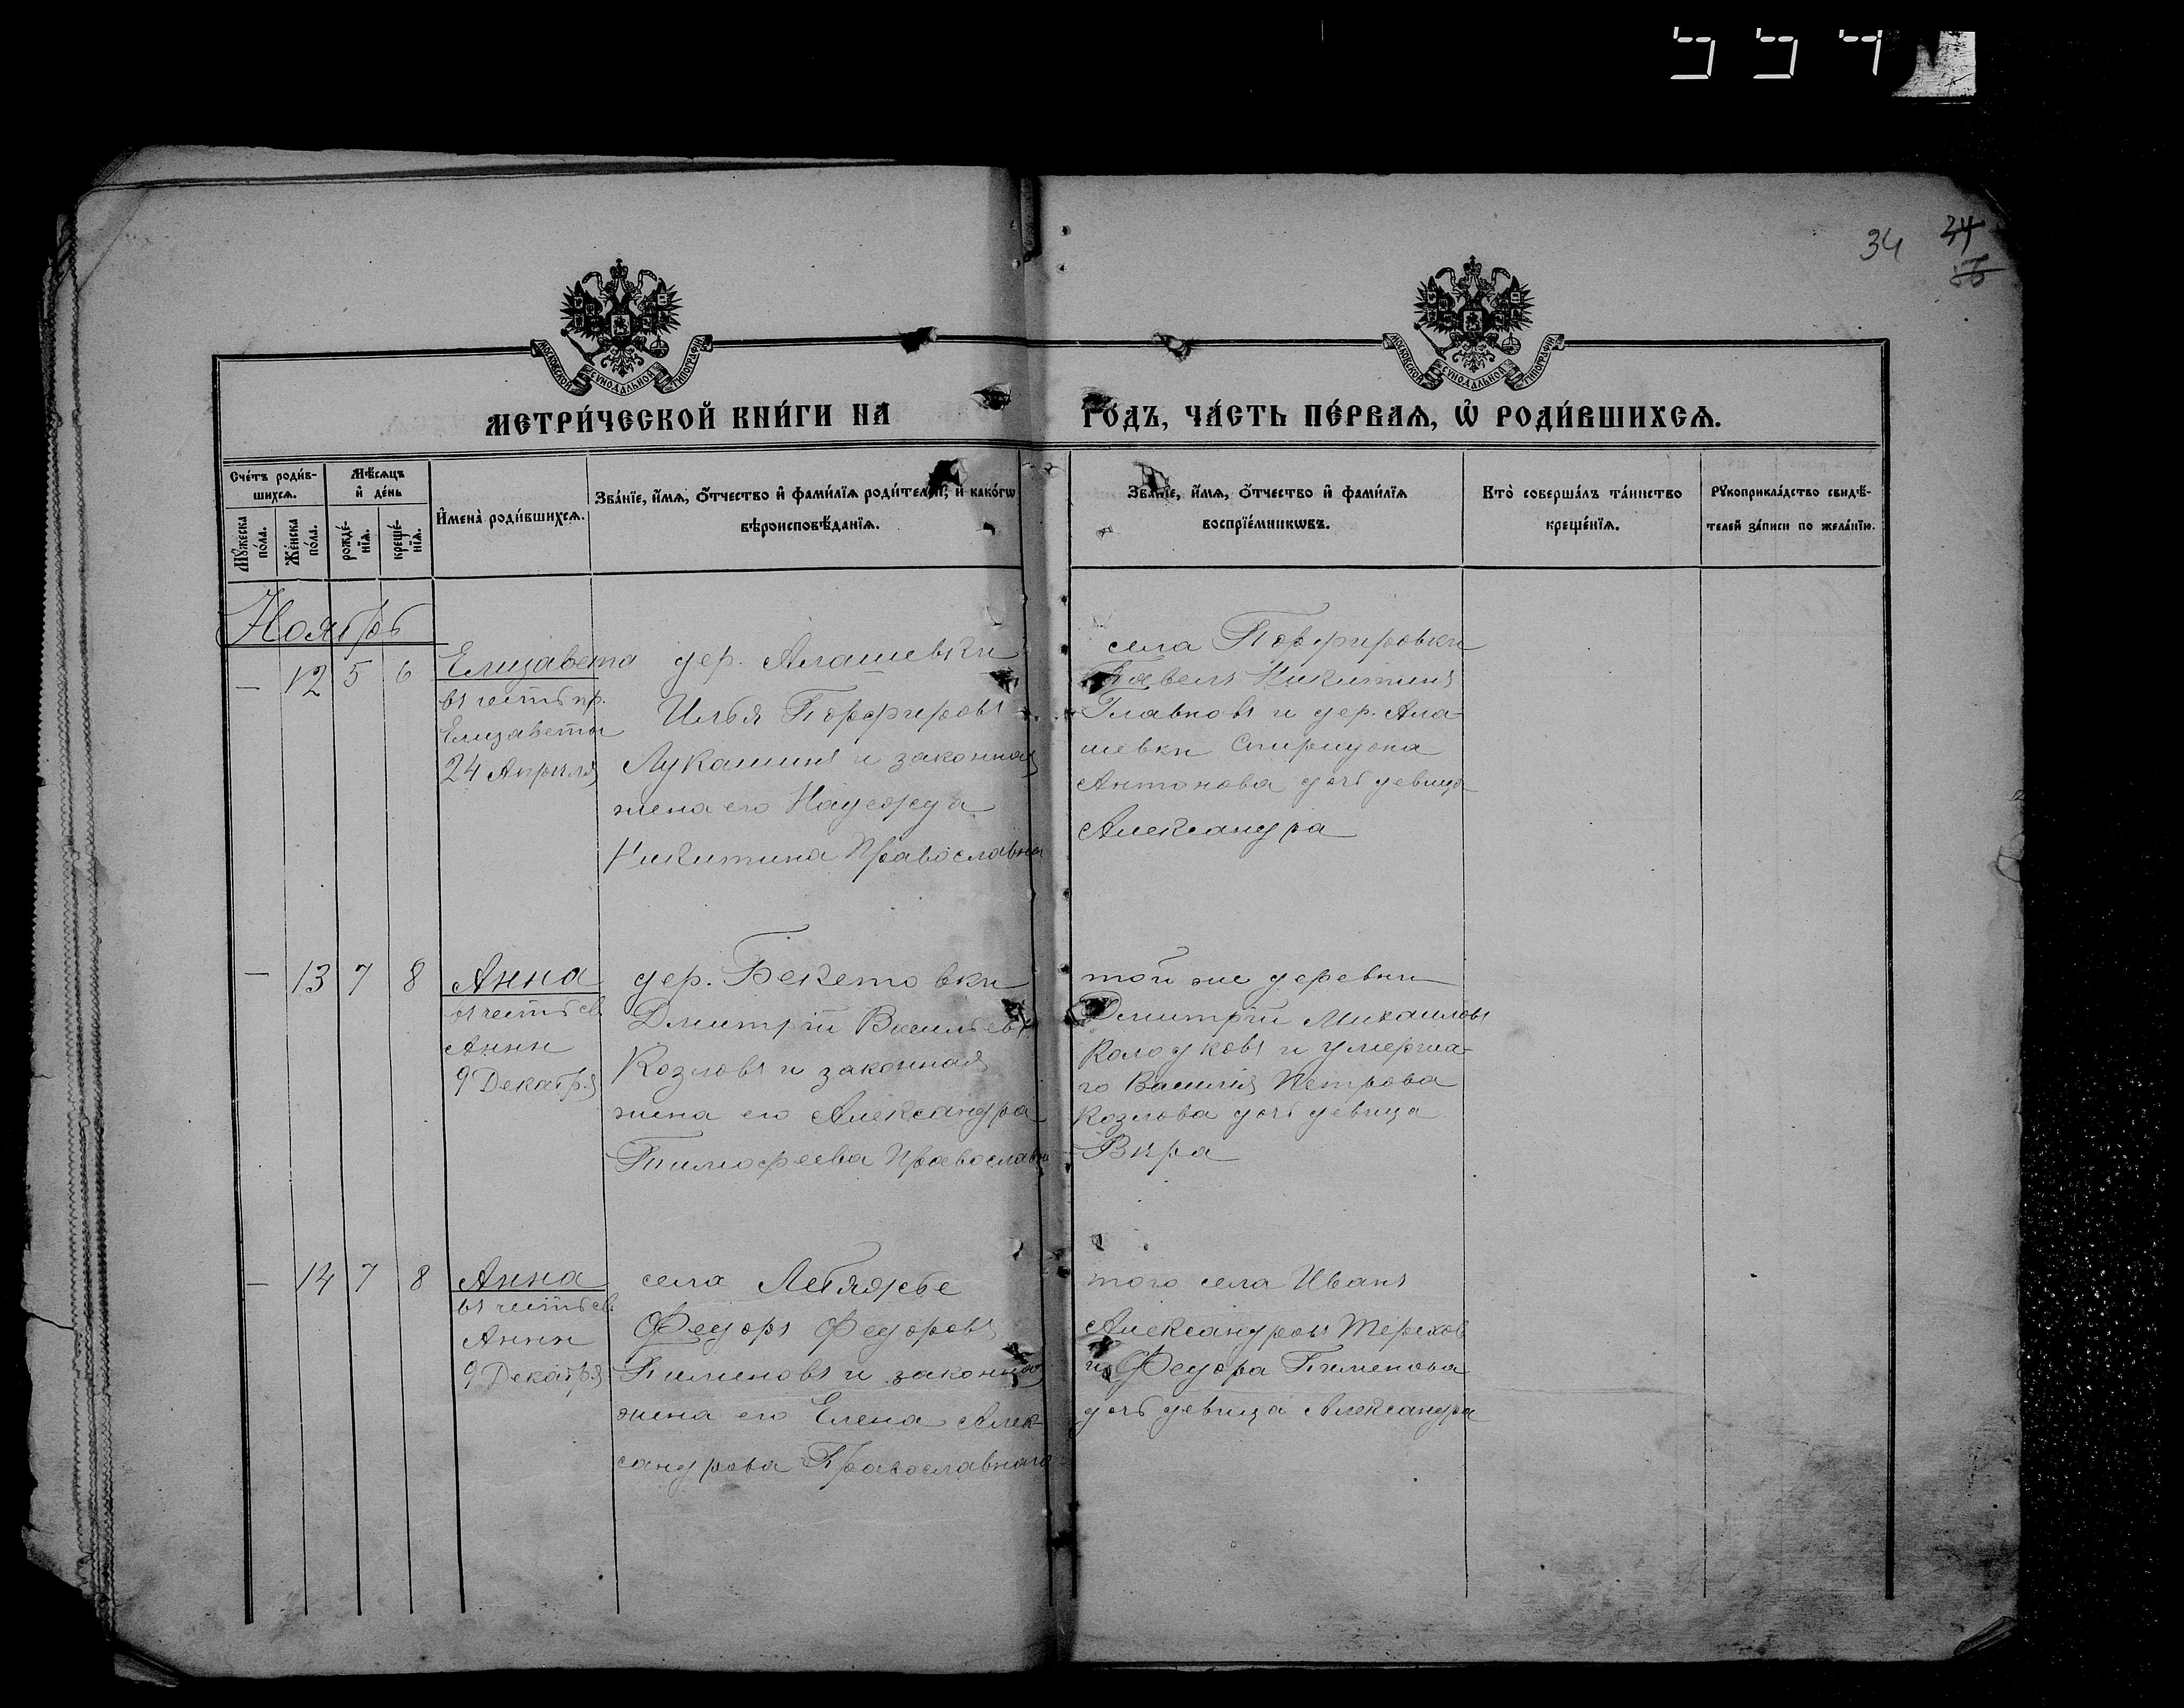 34 34
МОСКОВСКОЙ СѴНОДАЛЬНОЙ ТИПОГРАФІИ
МОСКОВСКОЙ СѴНОДАЛЬНОЙ ТИПОГРАФІИ
МЕТРИ́ЧЕСКОЙ КНИ́ГИ НА
ГО́ДЪ, ЧА́СТЬ ПЕ́РВАѦ, Ѡ҆ РОДИ́ВШИХСѦ.
Сче́тъ роди́в-
шихсѧ.
Мѣ́сѧцъ
и҆ де́нь
Мꙋ́жеска по́ла.
Же́нска по́ла.
рожде́-
нїѧ.
креще́-
нїѧ.
И҆мена̀ роди́вшихсѧ.
Зва́нїе, и҆́мѧ, ѻ҆́тчество и҆ фами́лїѧ роди́телей, и҆ како́гѡ
вѣроисповѣ́данїѧ.
Зва́нїе, и҆́мѧ, ѻ҆́тчество и҆ фами́лїѧ
воспрїе́мникѡвъ.
Кто̀ соверша́лъ та́инство
креще́нїѧ.
Рꙋкоприкла́дство свидѣ́-
телей за́писи по жела́нїю.
Ноябрь
— 12 5 6
Елизавета
въ честь пр.
Елизаветы
24 Апрѣля
дер. Алашевки
Илья Порфировъ
Лукашинъ и законная
жена его Надежда
Никитина Православна
села Порфировки
Павелъ Никитинъ
Главновъ и дер. Ала-
шевки Спиридона
Антонова дочь девица
Александра
— 13 7 8
Анна
въ честь св.
Анны
9 Декабря
дер. Бекетовки
Дмитрій Васильевъ
Козловъ и законная
жена его Александра
Тимофеева Православн
той же деревни
Дмитрій Михаиловъ
Колодковъ и умерша-
го Василія Петрова
Козлова дочь девица
Вѣра
— 14 7 8
Анна
въ честь св.
Анны
9 Декабря
села Лебяжье
Федоръ Федоровъ
Пименовъ и законная
жена его Елена Алек-
сандрова Православнаго
того села Иванъ
Александровъ Терехов
и Федора Пименова
дочь девица Александра